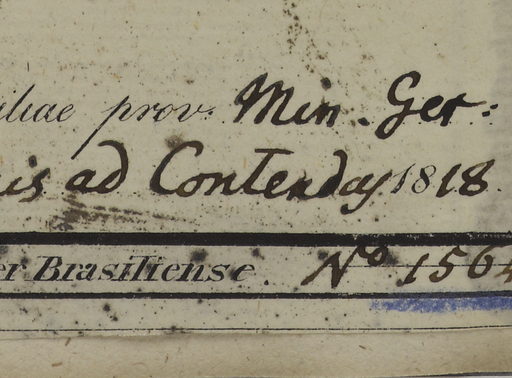 iliae prov. Min. Ger:
is ad Contendas 1818.
er Brasiliense. No 1564